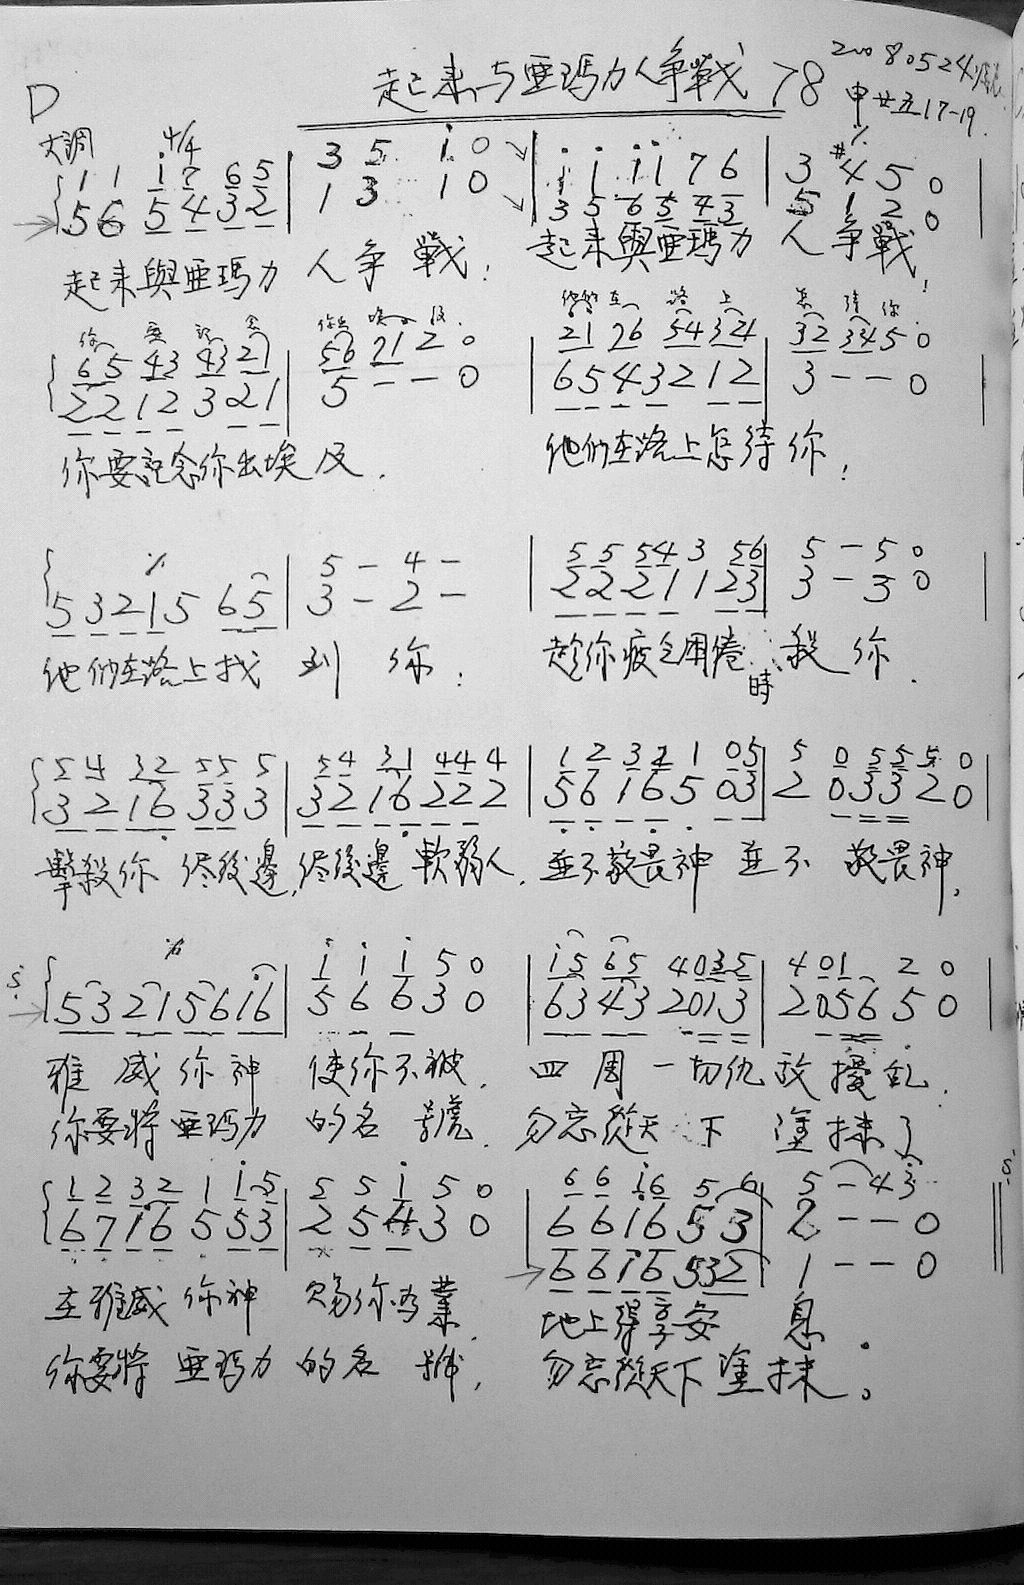 起来与亚瑪力人争戰 78
20080524
申廿五17-19.
D
大調 4/4
1 1 i 7 6 5 | 3 5 i 0 | i i i i 7 6 | 3 #4 5 0
5 6 5 4 3 2 | 1 3 1 0 | 3 5 6 5 4 3 | 5 1 2 0
起来與亚瑪力 人争戰! 起来與亚瑪力 人争戰!
你 要 記 念 你出 埃 及. 他們 在 路 上 怎 待 你
65 43 43 21 | 56 71 2 0 | 21 76 54 324 | 32 334 5 0
2 2 1 2 3 2 1 | 5 - - 0 | 6 5 4 3 2 1 2 | 3 - - 0
你要記念你出埃及. 他們在路上怎待你!
5 - 4 - | 5 5 54 3 56 | 5 - 5 0
5 3 2 1 5 6 5 | 3 - 2 - | 2 2 2 1 1 2 3 | 3 - 3 0
他們在路上找到你! 趁你疲乏困倦時殺你.
5 4 32 55 5 | 5 4 31 44 4 | 1 2 3 2 1 05 | 5 0 5 5 5 0
3 2 16 33 3 | 3 2 16 22 2 | 5 6 1 6 5 03 | 2 0 3 3 2 0
擊殺你 尽後邊,尽後邊 軟弱人. 並不敬畏神 並不 敬畏神.
i i i 5 0 | i5 65 40 35 | 4 01 2 0
53 21 56 16 | 5 6 6 3 0 | 63 43 2013 | 2 056 5 0
雅威你神 使你不被. 四周一切仇敌擾乱.
你要將亚瑪力 的名號. 勿忘從天下 塗抹了
1 2 32 1 i 5 | 5 5 i 5 0 | 6 6 i6 5 6 | 5 - 43
6 7 16 5 53 | 2 5 4 3 0 | 6 6 16 5 3 | 2 - - 0
6 6 1 6 5 3 2 | 1 - - 0
主雅威你神 賜你為業. 地上得享安息.
你要將亚瑪力的名號, 勿忘從天下塗抹。